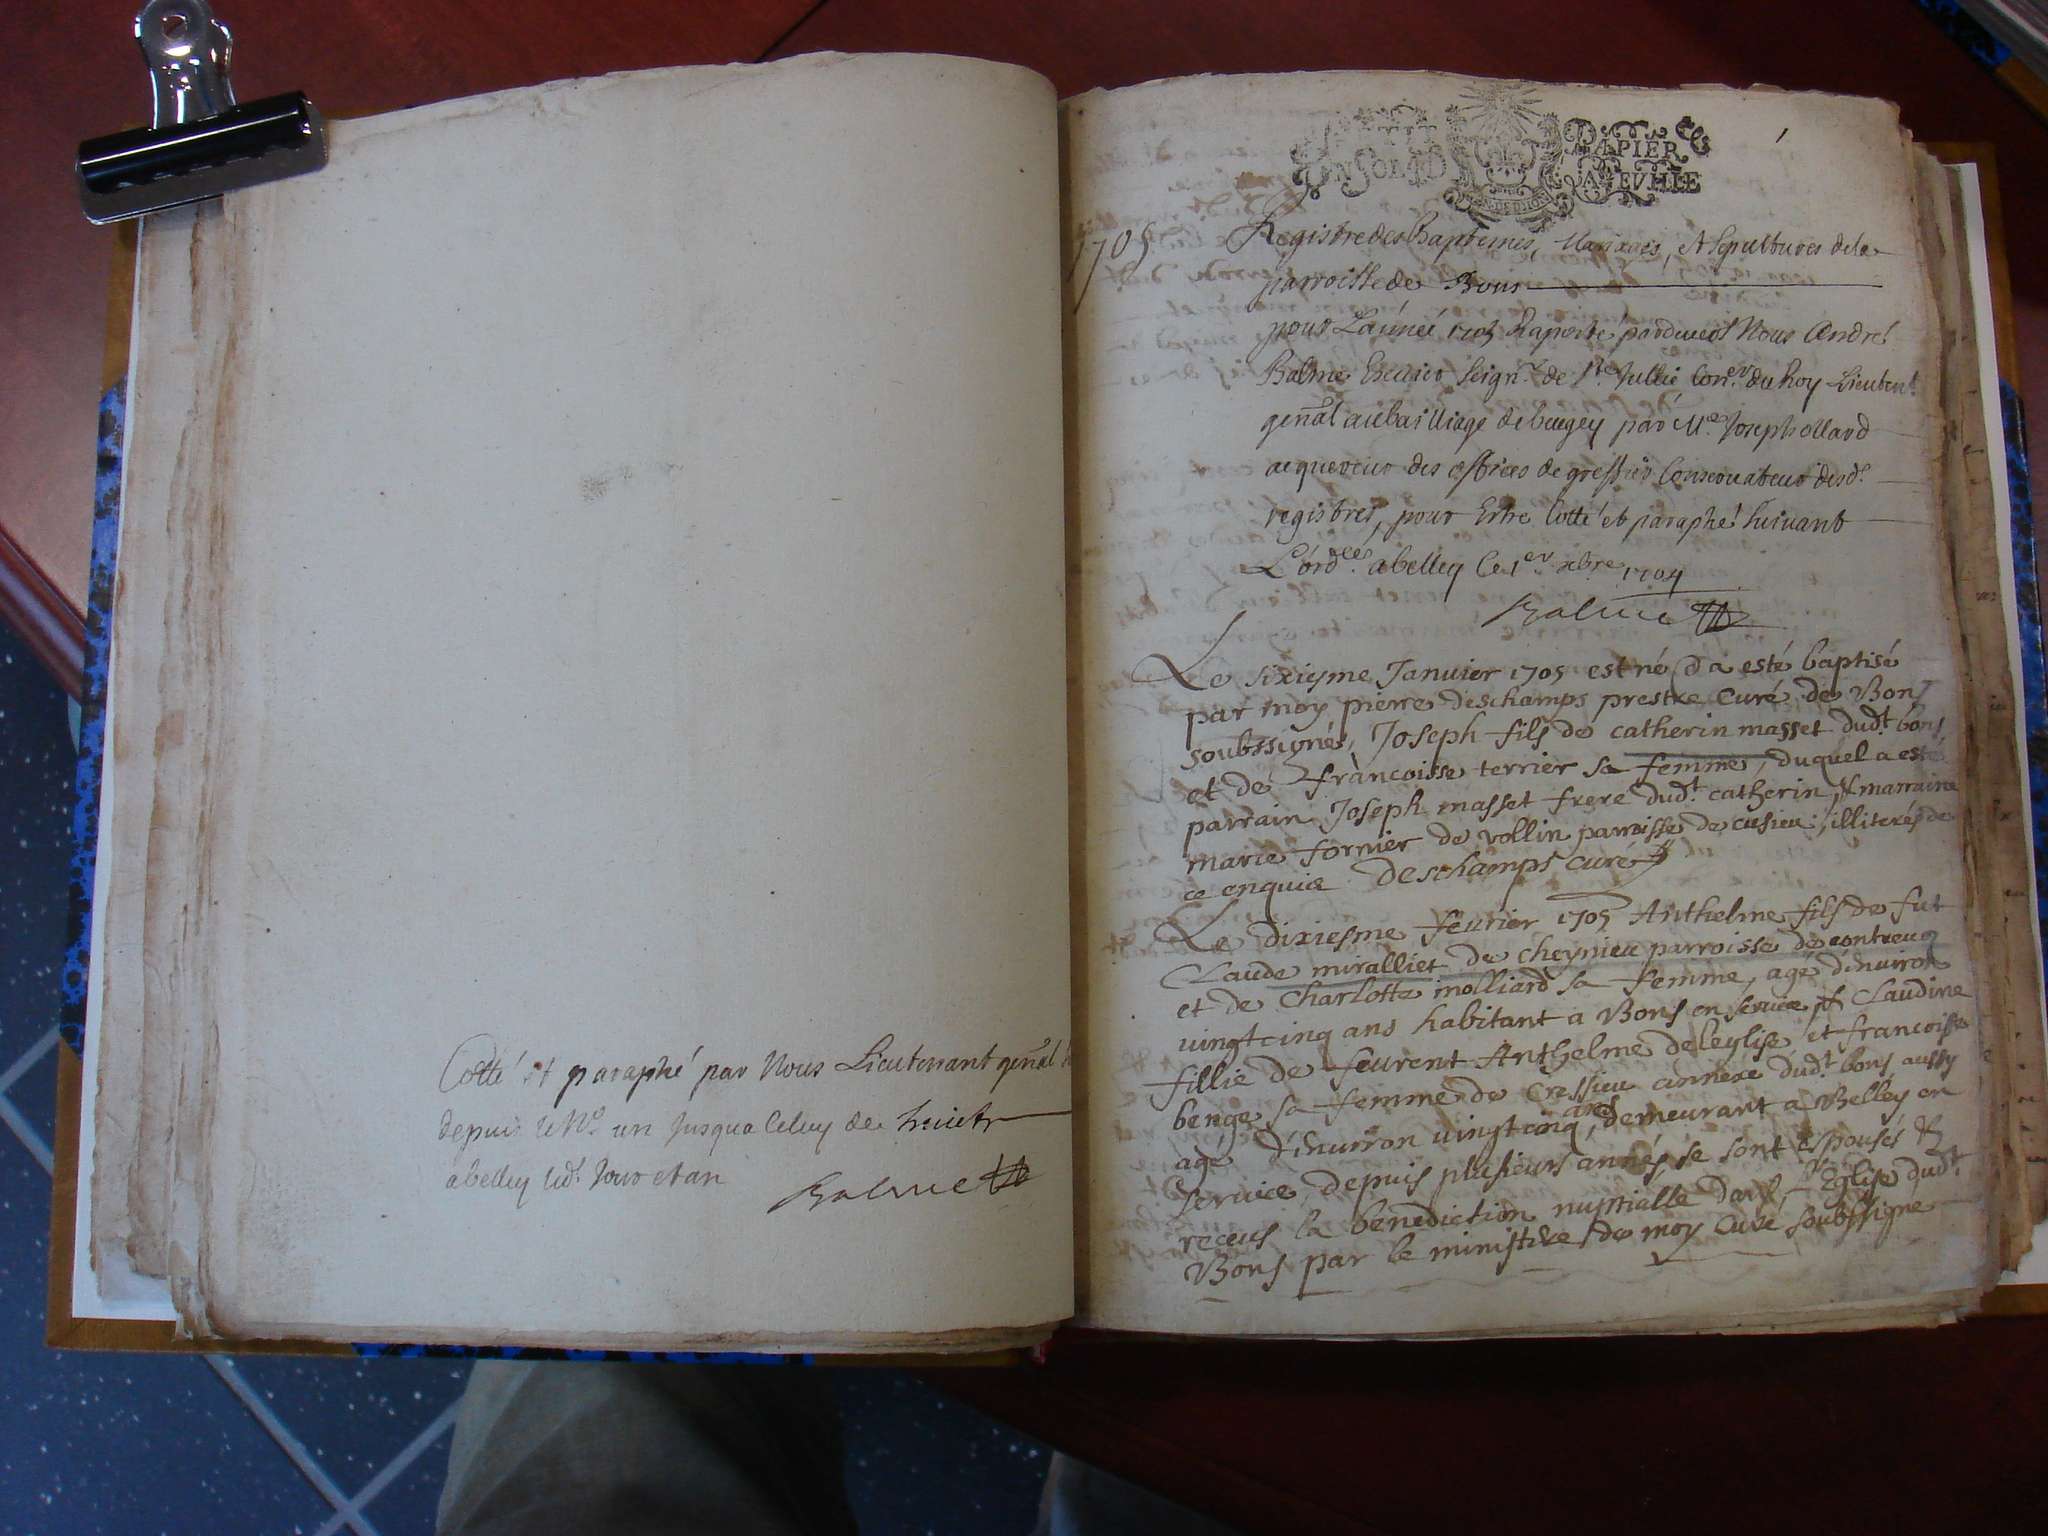 Cotté et paraphé par Nous Lieutenant gen̄al
depuis le No. un Jusqua Celuy de huict
abelley led. Jour et an
Balme
1
PETIT PAPIER
ON SOL 4 D LA FEVILLE
GEN. DE DIION
1705
Registre des baptemes, Mariages, et Sepultures de la
parroisse de Bons
pour L'année 1705 Raporté pardevant Nous André
Balme Escuier Seignr. de Ste Jullie Conser. du Roy Lieutent.
gen̄al au bailliage de bugey par Me Joseph ollard
acquereur des offices de greffier Conservateur desd.
registres, pour Estre Cotté et paraphé suivant
L'ordces. a belley Ce 1er xbre 1704
Balme
Le sixiesme Janvier 1705 est né & a esté baptisé
par moy pierre deschamps prestre Curé de Bons
soubssigné, Joseph fils de catherin masset dudt. bons
et de françoisse terrier sa femme, duquel a esté
parrain Joseph masset frere dudt. catherin, & marraine
marie fornier de vollin parroisse de cusieu, illiterés de
ce enquis Deschamps curé
Le dixiesme fevrier 1705 Anthelme fils de fut
Claude miralliet de cheynieu parroisse de contrevoz
et de Charlotte molliard sa femme, agé d'environ
vingtcinq ans habitant a Bons en service, & Claudine
fillie de feurent Anthelme de leglise et francoisse
benge sa femme de Cressieu annexe dudt. bons aussy
agé d'environ vingtcinq ans, demeurant a Belley en
service, depuis plusieurs annés, se sont espousés &
receus la benediction nuptialle dans l'Eglise dudt.
Bons par le ministere de moy Curé soubssigné